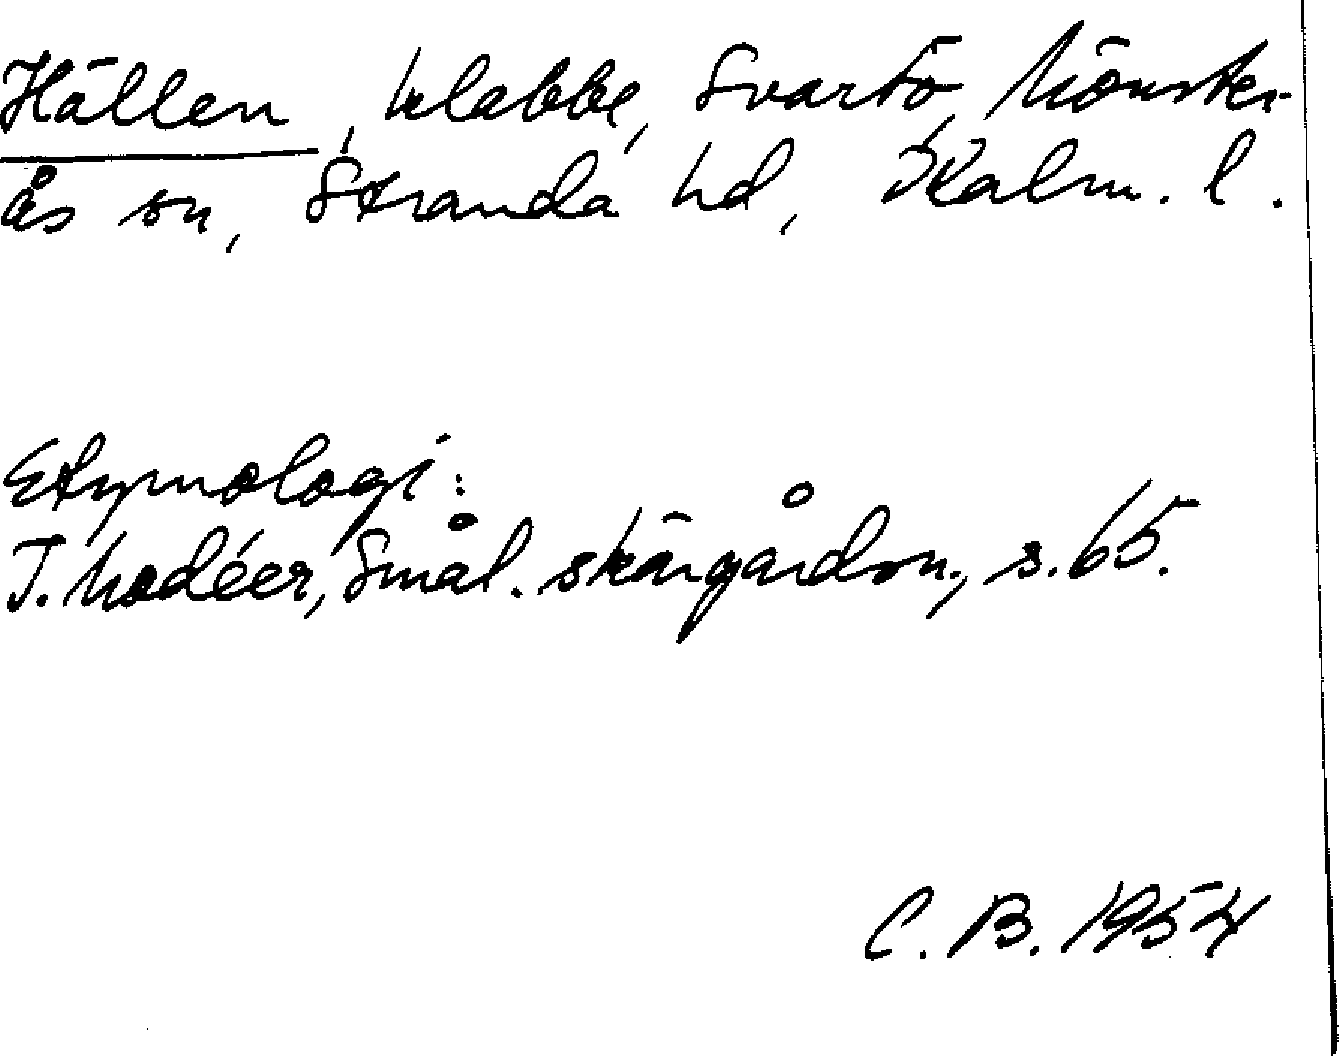 Hällen, klabbe, Svartö, Mönster-
ås sn, Stranda hd, Kalm. l.
Etymologi:
I. Modéer, Smål. skärgårdsn., s. 65.
C. B. 1954